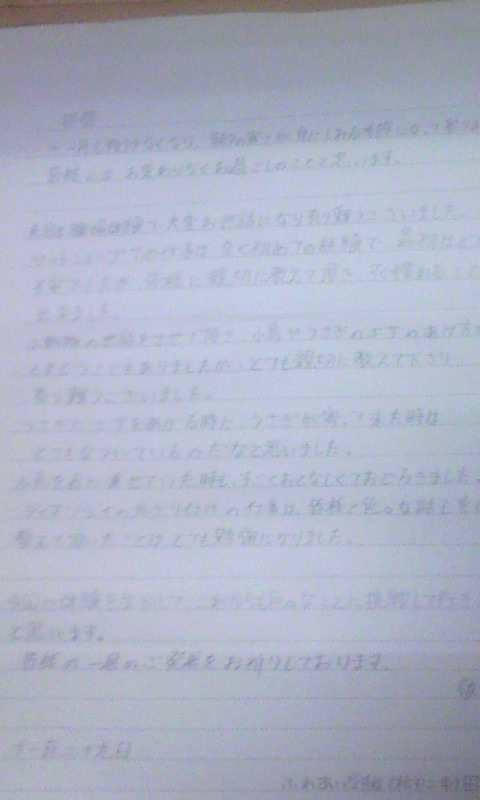 拝啓
十一月も残り少なくなり、朝夕の寒さが身にしみる季節になって参りました
皆様には、お変わりなくお過ごしのことと思います。
先日は職場体験で大変お世話になり有り難うございました。
ペットショップでの仕事は全く初めての経験で、最初はとても
不安でしたが、皆様に親切に教えて頂き、すぐ慣れること
出来ました。
小動物の世話をさせて頂き、小鳥やうさぎのエサのあげ方
とまどうこともありましたが、とても親切に教えて下さり
有り難うございました。
うさぎにエサをあげる時に、うさぎが寄って来た時は
とてもなついているのだなと思いました。
小鳥を肩に乗せていた時も、すごくおとなしくておどろきました。
ディスプレイのかざり付けの仕事は、皆様と色々な話しを
教えて頂いたことはとても勉強になりました。
今回の体験を生かして、これからも色々なことに挑戦して行き
と思います。
皆様の一層のご発展をお祈りしております。
敬
十一月二十九日
ふれあい